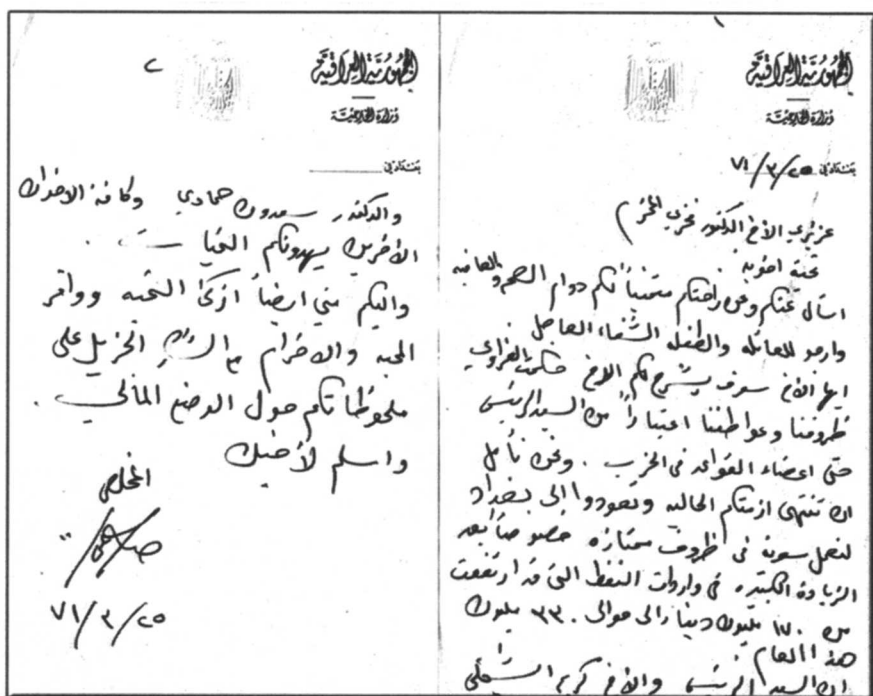 ١
الجمهورية العراقية
وزارة الخارجية
بغداد في ٢٥/٣/٧١
عزيزي الأخ الدكتور فخري المحترم
تحية اخوية
اسأل عنكم وعن راحتكم متمنياً لكم دوام الصحة والعافيه
وارجو للعائله والطفله الشفاء العاجل
ايها الأخ سوف يشرح لكم الاخ حكمت العزاوي
ظروفنا وعواطفنا اعتباراً من السيد الرئيس
حتى اعضاء القواعد في الحزب . ونحن نأمل
ان تنتهي ازمتكم الحاليه وتعودوا إلى بغداد
لنعمل سويه في ظروف ممتازه خصوصاً بعد
الزيادة الكبيره في واردات النفط التي قد ارتفعت
من ١٧٠ مليون دينار الى حوالي ٣٣٠ مليون
هذا العام
ان السيد الرئيس والأخ كريم
٢
الجمهورية العراقية
وزارة الخارجية
بغداد في
والدكتور سعدون حمادي وكافة الاخوان
الأخرين يهدونكم التحيات .
واليكم مني ايضاً ازكى التحيه ووافر
المحبه والاحترام مع الشكر الجزيل على
ملحوظاتكم حول الوضع المالي .
واسلم لأخيك
المخلص
٢٥/٣/٧١